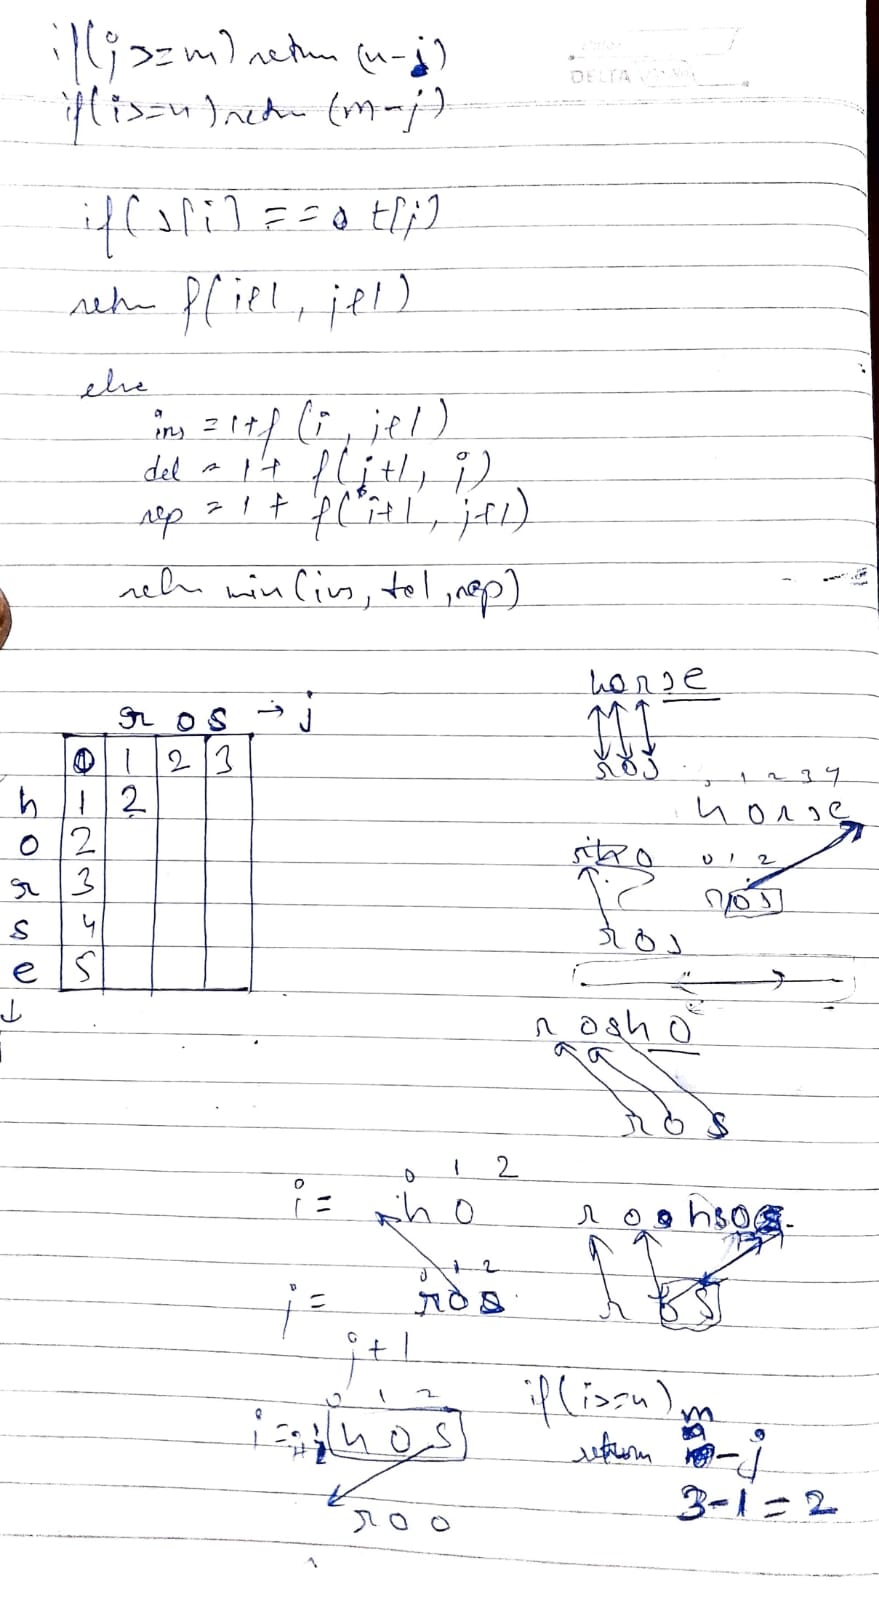 if(j>=m) return (n-j)
if(i>=n) return (m-j)
DELTA
if(s[i] == t[j]
retn f(i+1, j+1)
else
ins = 1+f (i, j+1)
del = 1+ f(i+1, j)
rep = 1 + f(i+1, j+1)
retn min(ins, tel, rep)
horse
ros
r o s → j
0 1 2 3
h 1 2
o 2
r 3
s 4
e 5
1 2 3 4
horse
0 1 2
ros
ros
rosho
ros
0 1 2
i = ho
0 1 2
j = ros
j+1
roohsos
r o s
0 1 2
i = hos
roo
if(i>=n)
return m-j
3-1=2